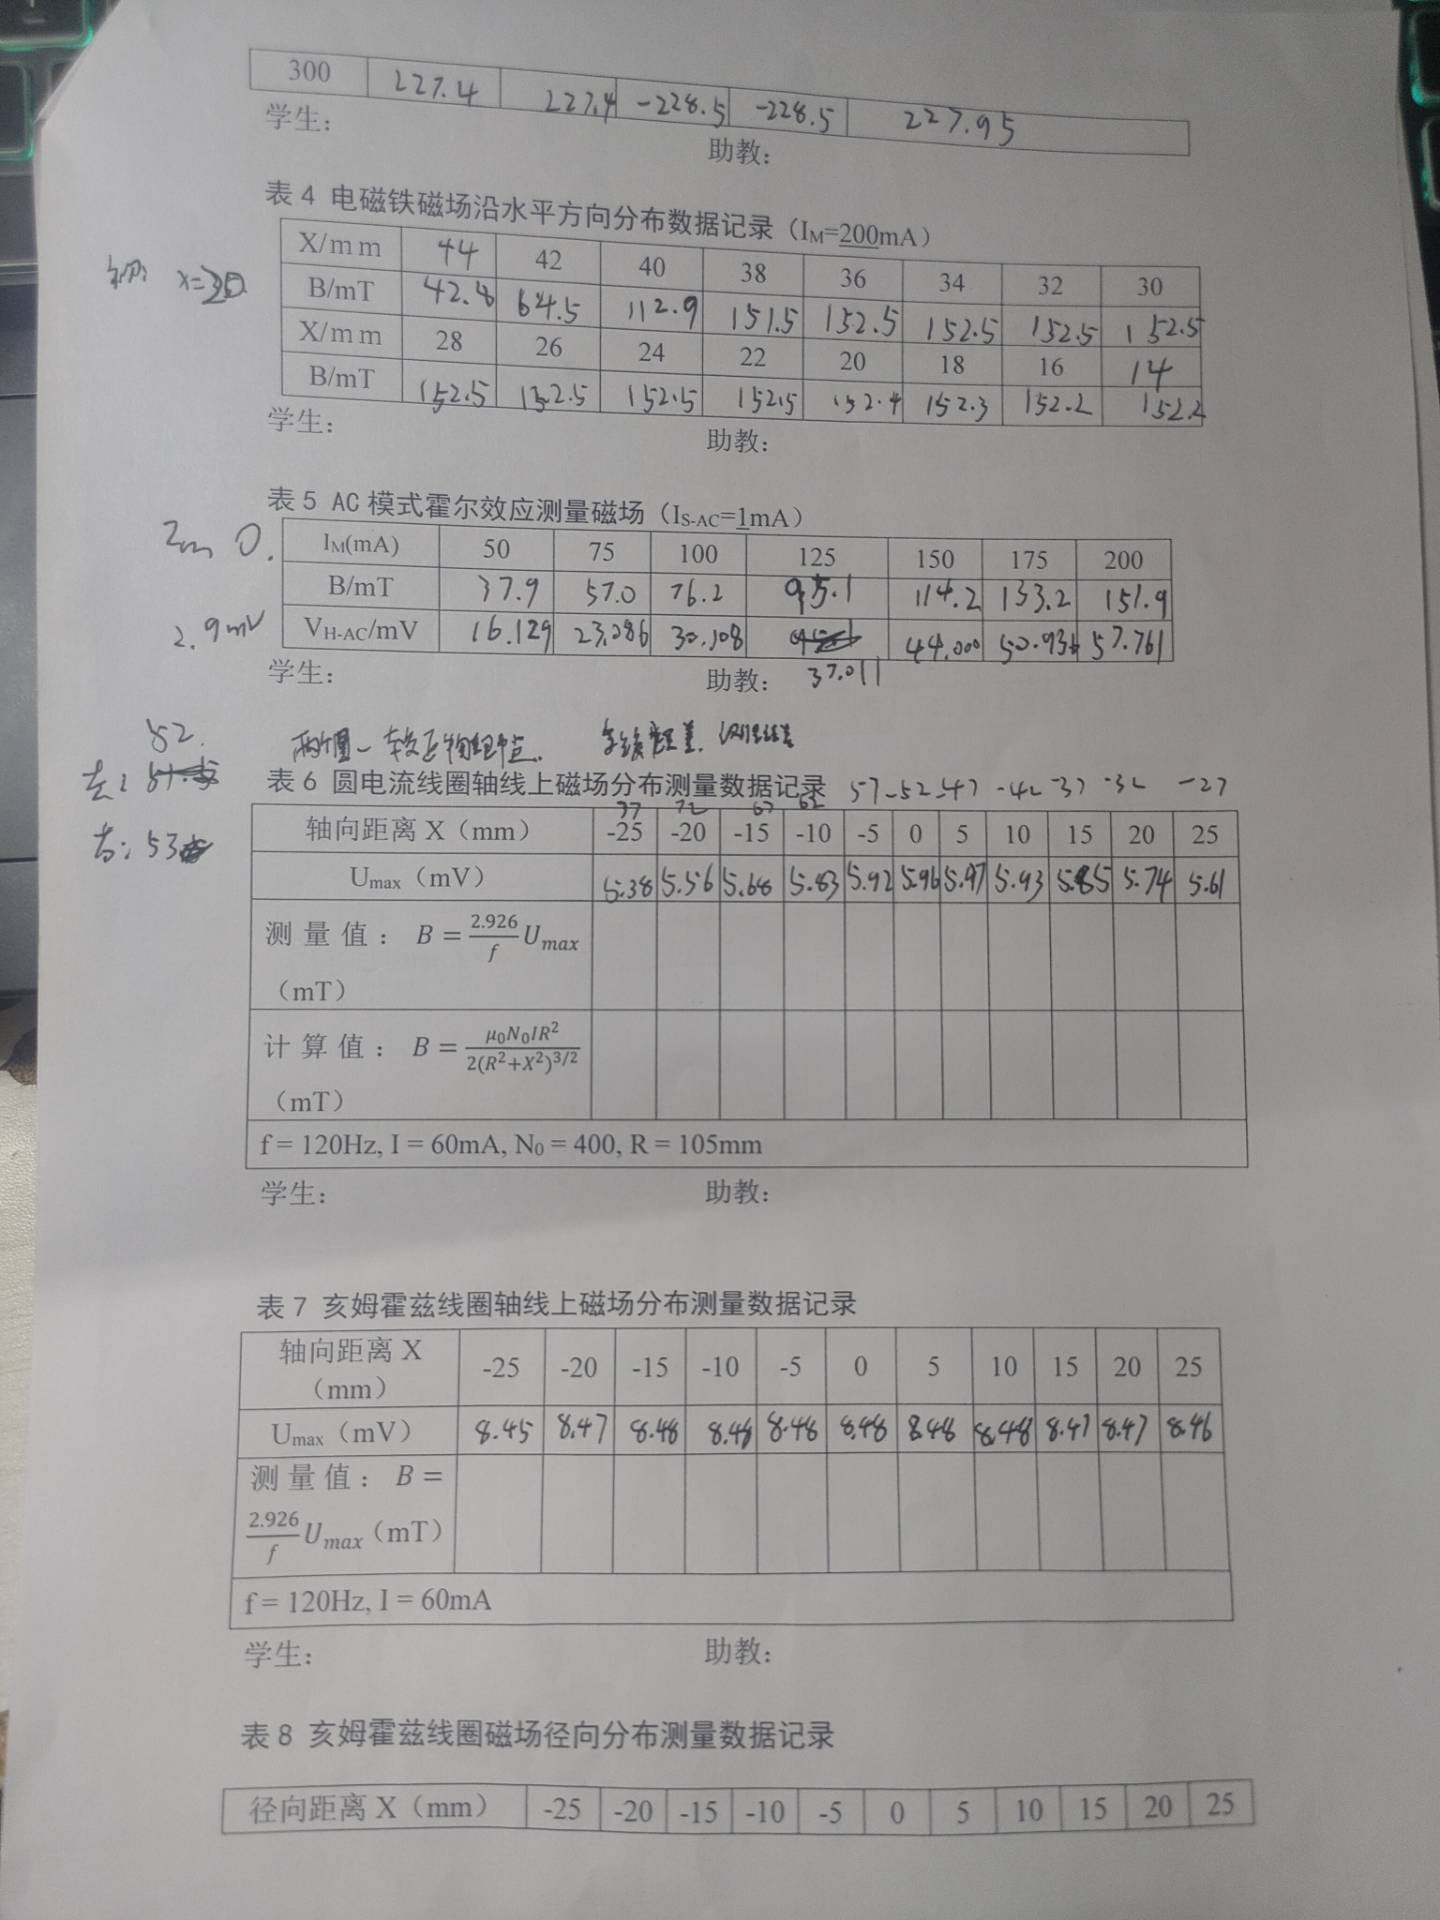 300 227.4 227.4 -228.5 -228.5 227.95
学生： 助教：
表 4 电磁铁磁场沿水平方向分布数据记录（IM=200mA）
X/mm 44 42 40 38 36 34 32 30
x=30
B/mT 42.8 64.5 112.9 151.5 152.5 152.5 152.5 152.5
X/mm 28 26 24 22 20 18 16 14
B/mT 152.5 152.5 152.5 152.5 152.4 152.3 152.2 152.2
学生： 助教：
表 5 AC 模式霍尔效应测量磁场（IS-AC=1mA）
0. IM(mA) 50 75 100 125 150 175 200
B/mT 37.9 57.0 76.2 95.1 114.2 133.2 151.9
2.9mV VH-AC/mV 16.129 23.086 30.108 44.000 50.936 57.761
37.011
学生： 助教：
52.
左：
表 6 圆电流线圈轴线上磁场分布测量数据记录 57-52-47-42-37-32-27
77 72 67 62
右：53
轴向距离 X（mm） -25 -20 -15 -10 -5 0 5 10 15 20 25
Umax（mV） 5.38 5.56 5.68 5.83 5.92 5.96 5.97 5.93 5.85 5.74 5.61
测量值：B = 2.926/f Umax
（mT）
计算值：B = μ0N0IR²/2(R²+X²)^3/2
（mT）
f = 120Hz, I = 60mA, N0 = 400, R = 105mm
学生： 助教：
表 7 亥姆霍兹线圈轴线上磁场分布测量数据记录
轴向距离 X
（mm） -25 -20 -15 -10 -5 0 5 10 15 20 25
Umax（mV） 8.45 8.47 8.48 8.48 8.48 8.48 8.48 8.48 8.47 8.47 8.46
测量值：B =
2.926/f Umax（mT）
f = 120Hz, I = 60mA
学生： 助教：
表 8 亥姆霍兹线圈磁场径向分布测量数据记录
径向距离 X（mm） -25 -20 -15 -10 -5 0 5 10 15 20 25